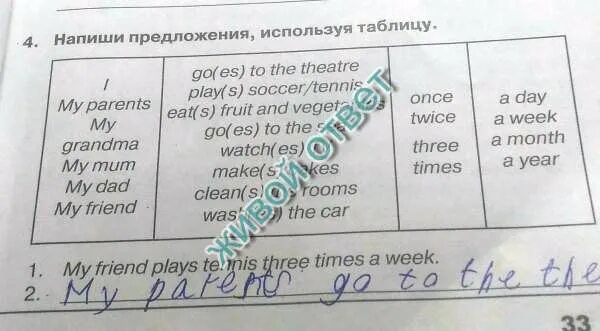 4. Напиши предложения, используя таблицу.
I
My parents
My
grandma
My mum
My dad
My friend
go(es) to the theatre
play(s) soccer/tennis
eat(s) fruit and vegetables
go(es) to the
watch(es)
make(s) cakes
clean(s) rooms
wash(es) the car
once
twice
three
times
a day
a week
a month
a year
ЖИВОЙ ОТВЕТ
1. My friend plays tennis three times a week.
2. My parents go to the the
33